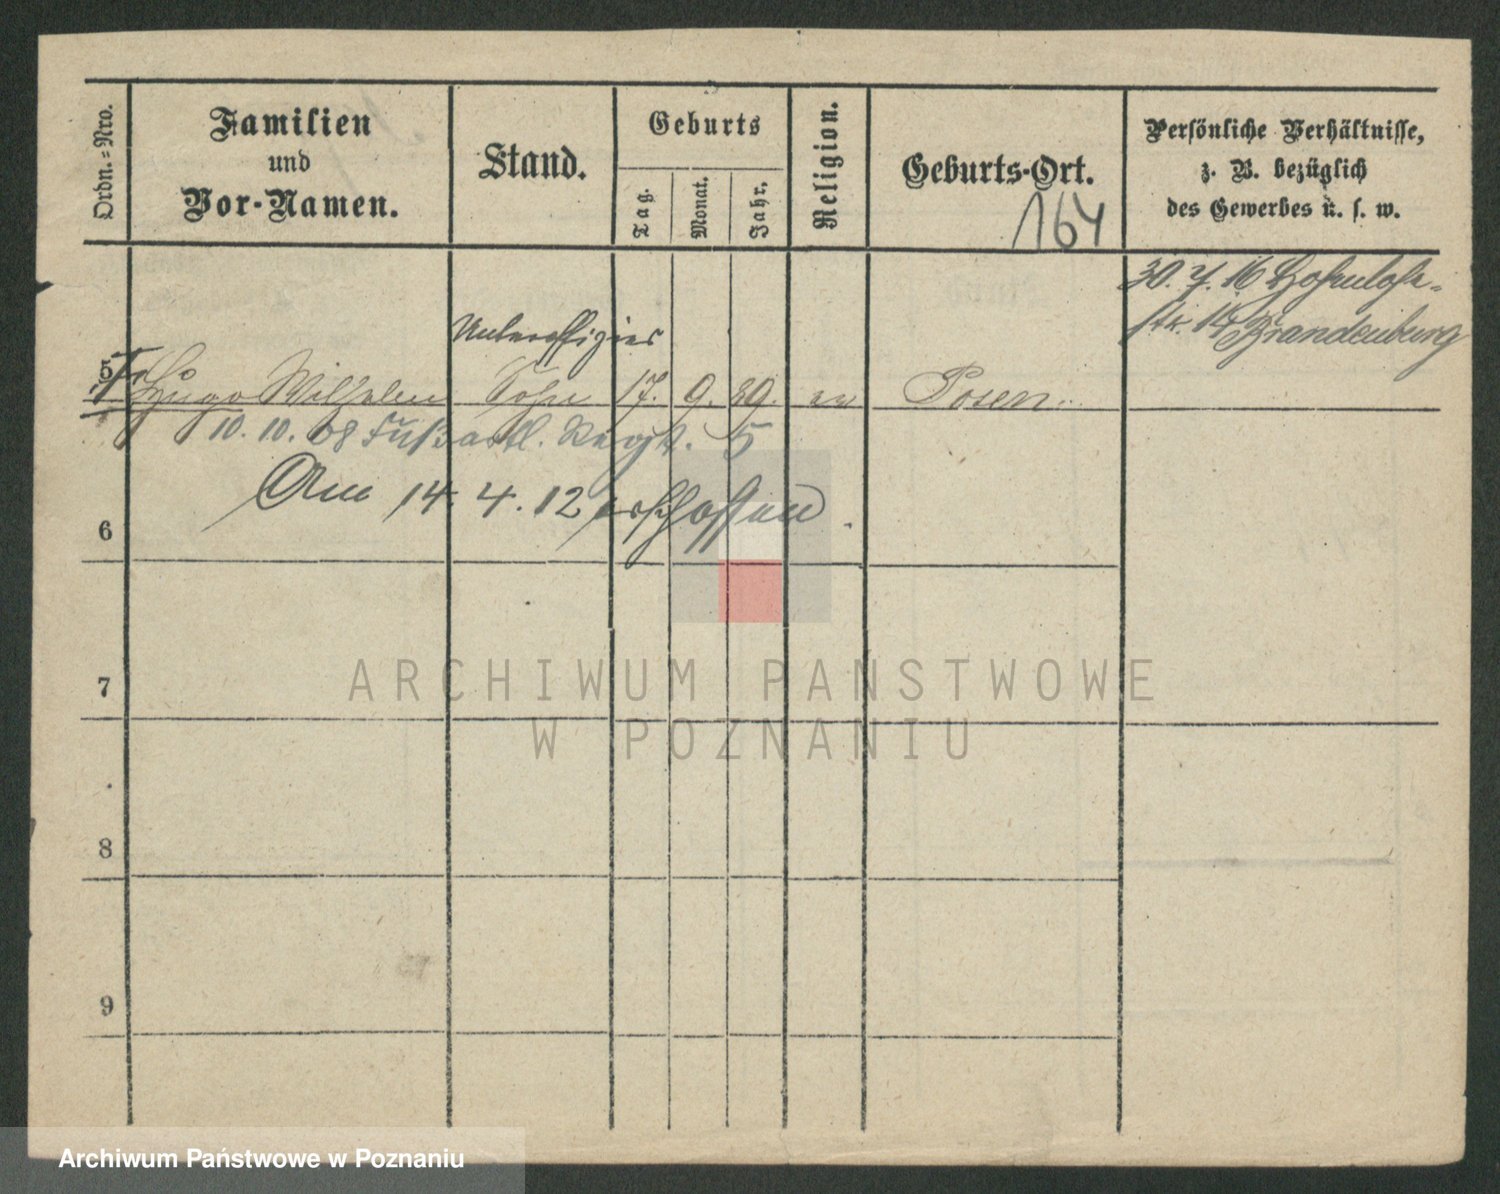 Ordn.=Nro.
Familien
und
Vor-Namen.
Stand.
Geburts
Tag.
Monat.
Jahr.
Religion.
Geburts-Ort.
164
Persönliche Verhältnisse,
z. B. bezüglich
des Gewerbes u. s. w.
30. 7. 16 Hohenlohe-
str. 14 Brandenburg
Unteroffizier
5 Hugo Wilhelm Sohn 17. 9. 89. ev Posen.
10. 10. 08 Fußartl. Regt. 5
Am 14. 4. 12 erschossen.
6
7
8
9
ARCHIWUM PAŃSTWOWE
W POZNANIU
Archiwum Państwowe w Poznaniu